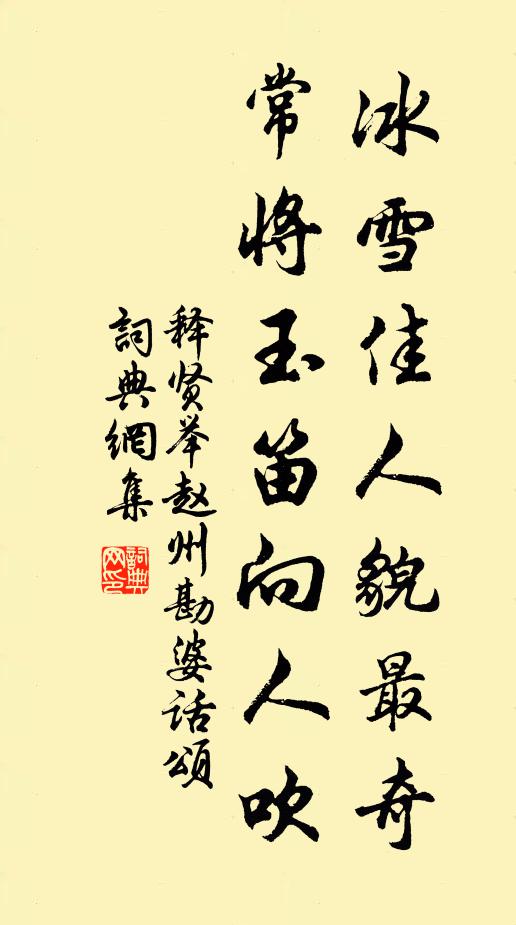 冰雪佳人貌最奇
常将玉笛向人吹
释贤举赵州勘婆话颂
詞典網集
詞典
网印